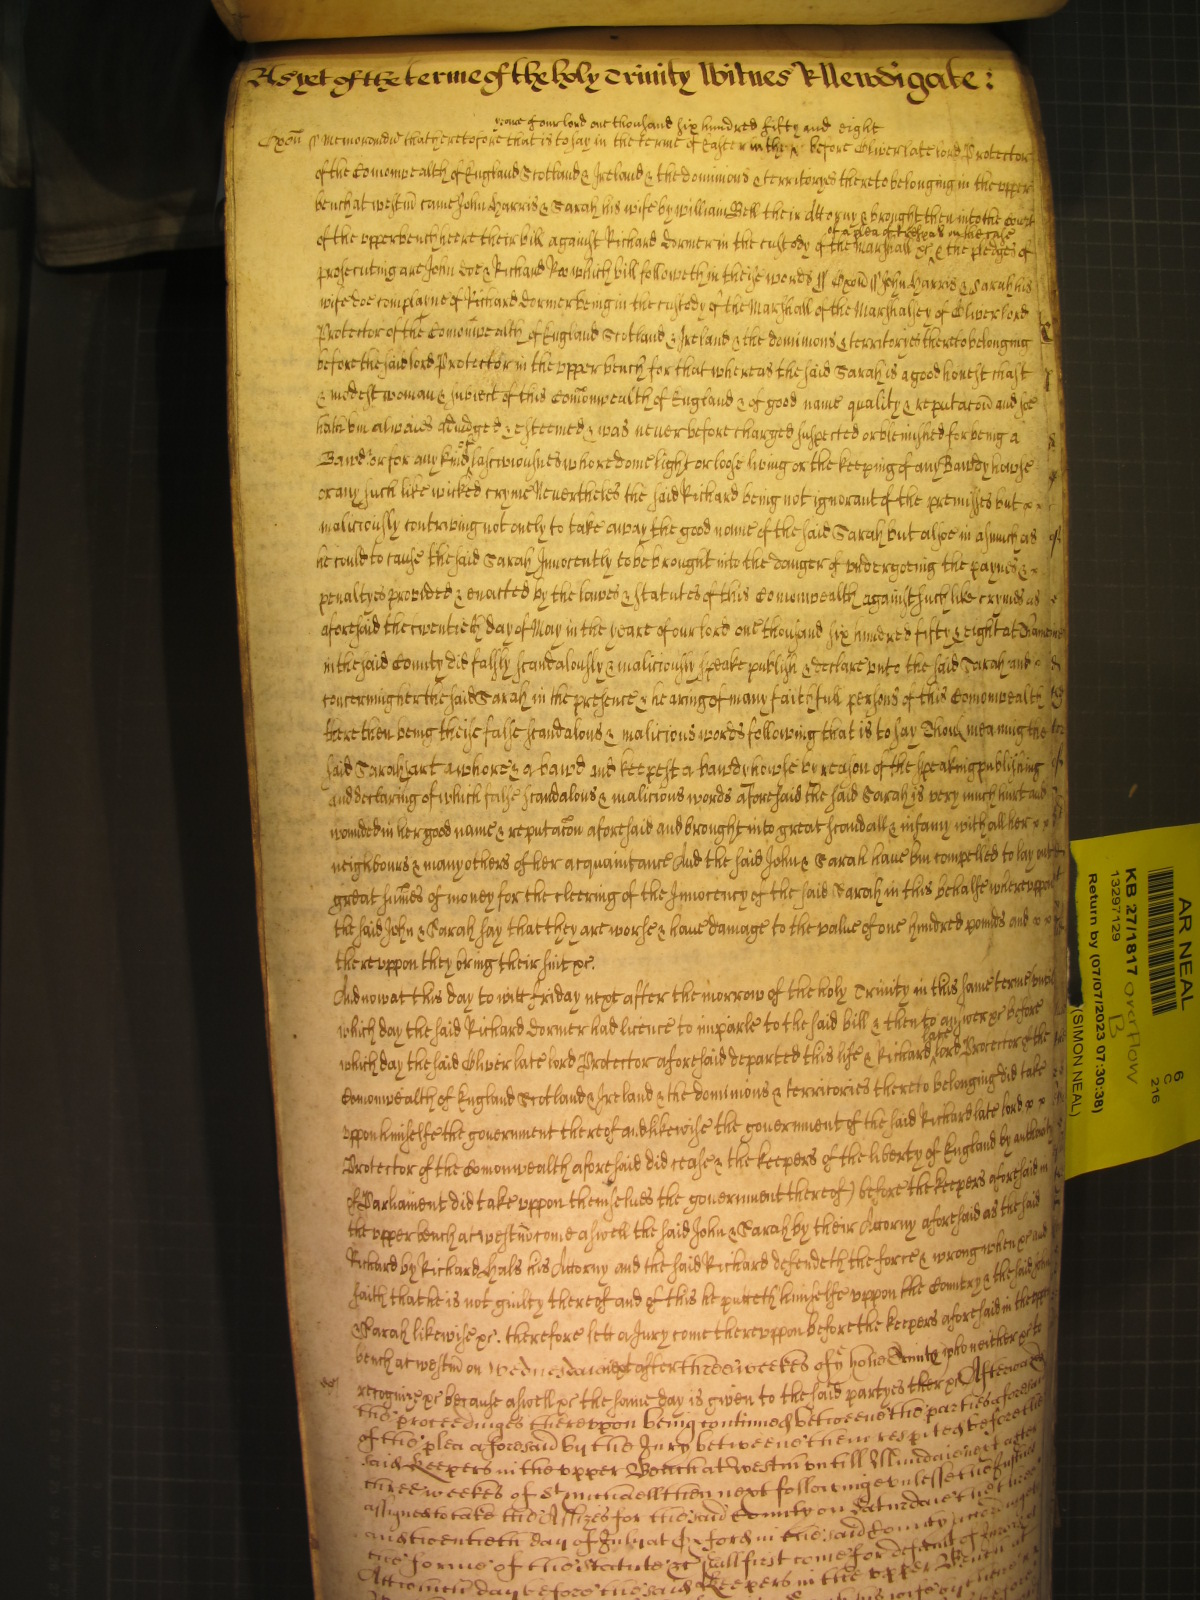 As yet of the terme of the holy Trinity Witnes R Newdigate:
yeare of our lord one thousand six hundred fifty and eight
Oxon ss Memorandu that heretofore that is to say in the terme of Easter in the ^ before Oliver late lord Protector
of the Comonwealth of England Scotland & Ireland & the dominions & territoryes thereto belonging in the upper
bench at westm came John Harris & Sarah his wife by William Bell their Attorny & brought then into the Court
of a plea of trespas on the case
of the upper bench heere their bill against Richard Dormer in the custody of the Marshall &c ^ & the pledges of
prosecuting are John Doe & Richard Roe which bill followeth in theise words ss Oxon ss John Harris & Sarah his
wife doe complayne of Richard Dormer being in the custody of the Marshall of the Marshalsey of Oliver lord
Protector of the Comonwealth of England Scotland & Ireland & the dominions & territoryes thereto belonging
before the said lord Protector in the upper bench for that whereas the said Sarah is a good honest chast
& modest woman & subiect of this Comonwealth of England & of good name quality & reputacon and soe
hath bin alwaies adiudged & esteemed & was never before charged suspected or blemished for being a
Bawd or for any kind of lasciviousnes whoredome light or loose living or the keeping of any Bawdy howse
or any such like wicked cryme Nevertheles the said Richard being not ignorant of the premisses but
maliciously contriving not onely to take away the good name of the said Sarah but alsoe in asmuch as
he could to cause the said Sarah Innocently to be brought into the danger of undergoeing the paynes &
penaltyes provided & enacted by the lawes & statutes of this Comonwealth against such like crymes as
aforesaid the twentieth day of May in the yeare of our lord one thousand six hundred fifty & eight at
in the said County did falsly scandalously & maliciously speake publish & declare unto the said Sarah and
concerning her the said Sarah in the presence & hearing of many faithfull persons of this Comonwealth
there then being theise false scandalous & malicious words following that is to say Thou meaning the
said Sarah art a whore & a bawd and keepest a bawdy howse by reason of the speaking publishing
and declaring of which false scandalous & malicious words aforesaid the said Sarah is very much hurt and
wounded in her good name & reputacon aforesaid and brought into great scandall & infamy with all her
neighbours & many others of her acquaintance And the said John & Sarah have bin compelled to lay out
great sumes of money for the cleering of the Innocency of the said Sarah in this behalfe whereuppon
the said John & Sarah say that they are worse & have damage to the value of one hundred pounds and
thereuppon they bring their suit &c.
And now at this day to witt friday next after the morrow of the holy Trinity in this same terme untill
which day the said Richard Dormer had licence to imparle to the said bill & then to answer &c before
late
which day the said Oliver late lord Protector aforesaid departed this life & Richard ^ lord Protector of the
Comonwealth of England Scotland & Ireland & the dominions & territories thereto belonging did take
uppon himselfe the government thereof and likewise the government of the said Richard late lord
Protector of the Comonwealth aforesaid did cease & the keepers of the liberty of England by authority
of Parliament did take uppon themselves the government thereof) before the keepers aforesaid in
the upper bench at westm come aswell the said John & Sarah by their Attorny aforesaid as the said
Richard by Richard Hals his Attorny and the said Richard defendeth the force & wrong when &c and
saith that he is not guilty thereof and of this he putteth himselfe uppon the Country & the said John
Sarah likewise &c. therefore lett a Jury come thereuppon before the keepers aforesaid in the upper
bench at westm on wednesday next after three weekes of ye holie Trinity who neither &c to
recognize &c because aswell &c the same day is given to the said partyes there &c Afterwards
the proceedinges thereuppon being continued betweene the parties aforesaid
of the plea aforesaid by the Jury betweene them respited before the
said Keepers in the upper Bench at westm untill next after
three weekes of St michaell then next following unlesse the Justices
assigned to take the Assizes for the said County on Saturdaie
and twentieth day of July at Oxford in the said County
the forme of the statute &c shall first come for default of
Att which day before the said Keepers in the upper Bench at
AR NEAL
6
C
216
KB 27/1817 overflow
B
13297129
Return by (07/07/2023 07:30:38)
(SIMON NEAL)